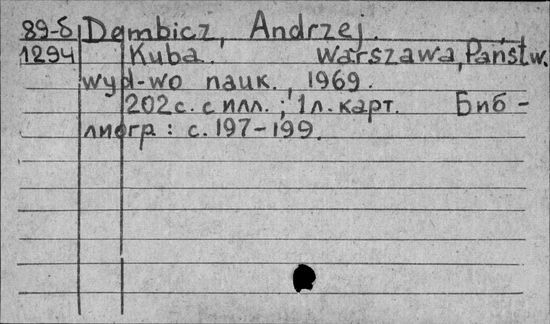 89-б Dembicz, Andrzej.
1294 Kuba. Warszawa, Państw.
wyd-wo nauk., 1969.
202 с. с илл. ; 1 л. карт. Биб-
лиогр : с. 197-199.